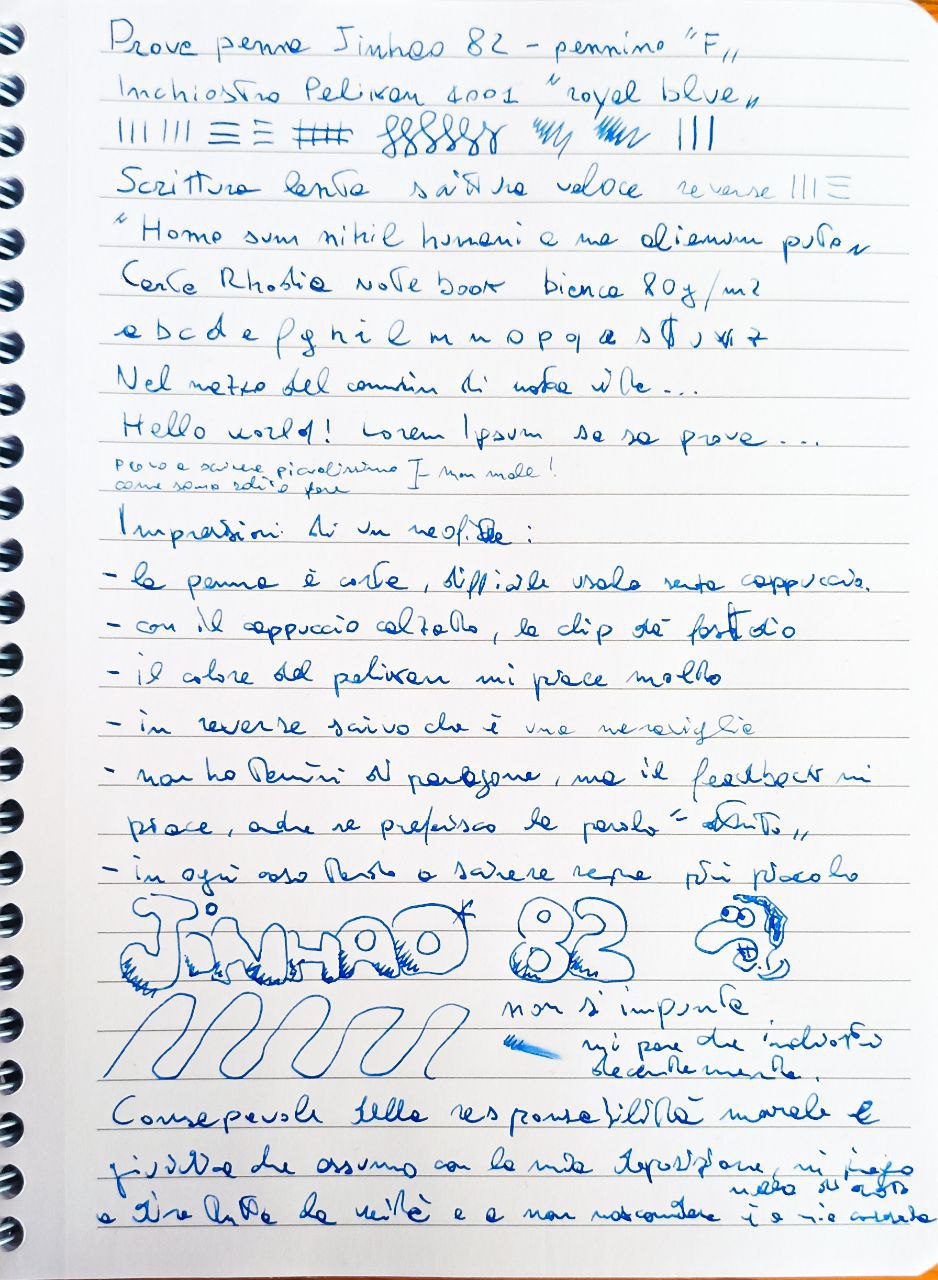 Prove penna Jinhao 82 - pennino "F„
Inchiostro Pelikan 4001 "royal blue„
Scrittura lenta scrittura veloce reverse
"Homo sum nihil humani a me alienum puto„
Carta Rhodia notebook bianca 80g/m2
a b c d e f g h i l m n o p q r s t u v z
Nel mezzo del cammin di nostra vita ...
Hello world! Lorem Ipsum sa sa prova ...
provo a scrivere piccolissimo
come sono solito fare
non male!
Impressioni di un neofita :
- la penna è corta, difficile usarla senza cappuccio.
- con il cappuccio calzato, la clip dà fastidio
- il colore del pelikan mi piace molto
- in reverse scrivo che è una meraviglia
- non ho termini di paragone, ma il feedback mi
piace, anche se preferisco la parola "attrito„
- in ogni caso tendo a scrivere sempre più piccolo
JINHAO 82
non si impunta
mi pare che inchiostri
decentemente.
Consapevole della responsabilità morale e
giuridica che assumo con la mia deposizione, mi impegno
a dire tutta la verità e a non nascondere nulla di quanto
è a mia conoscenza